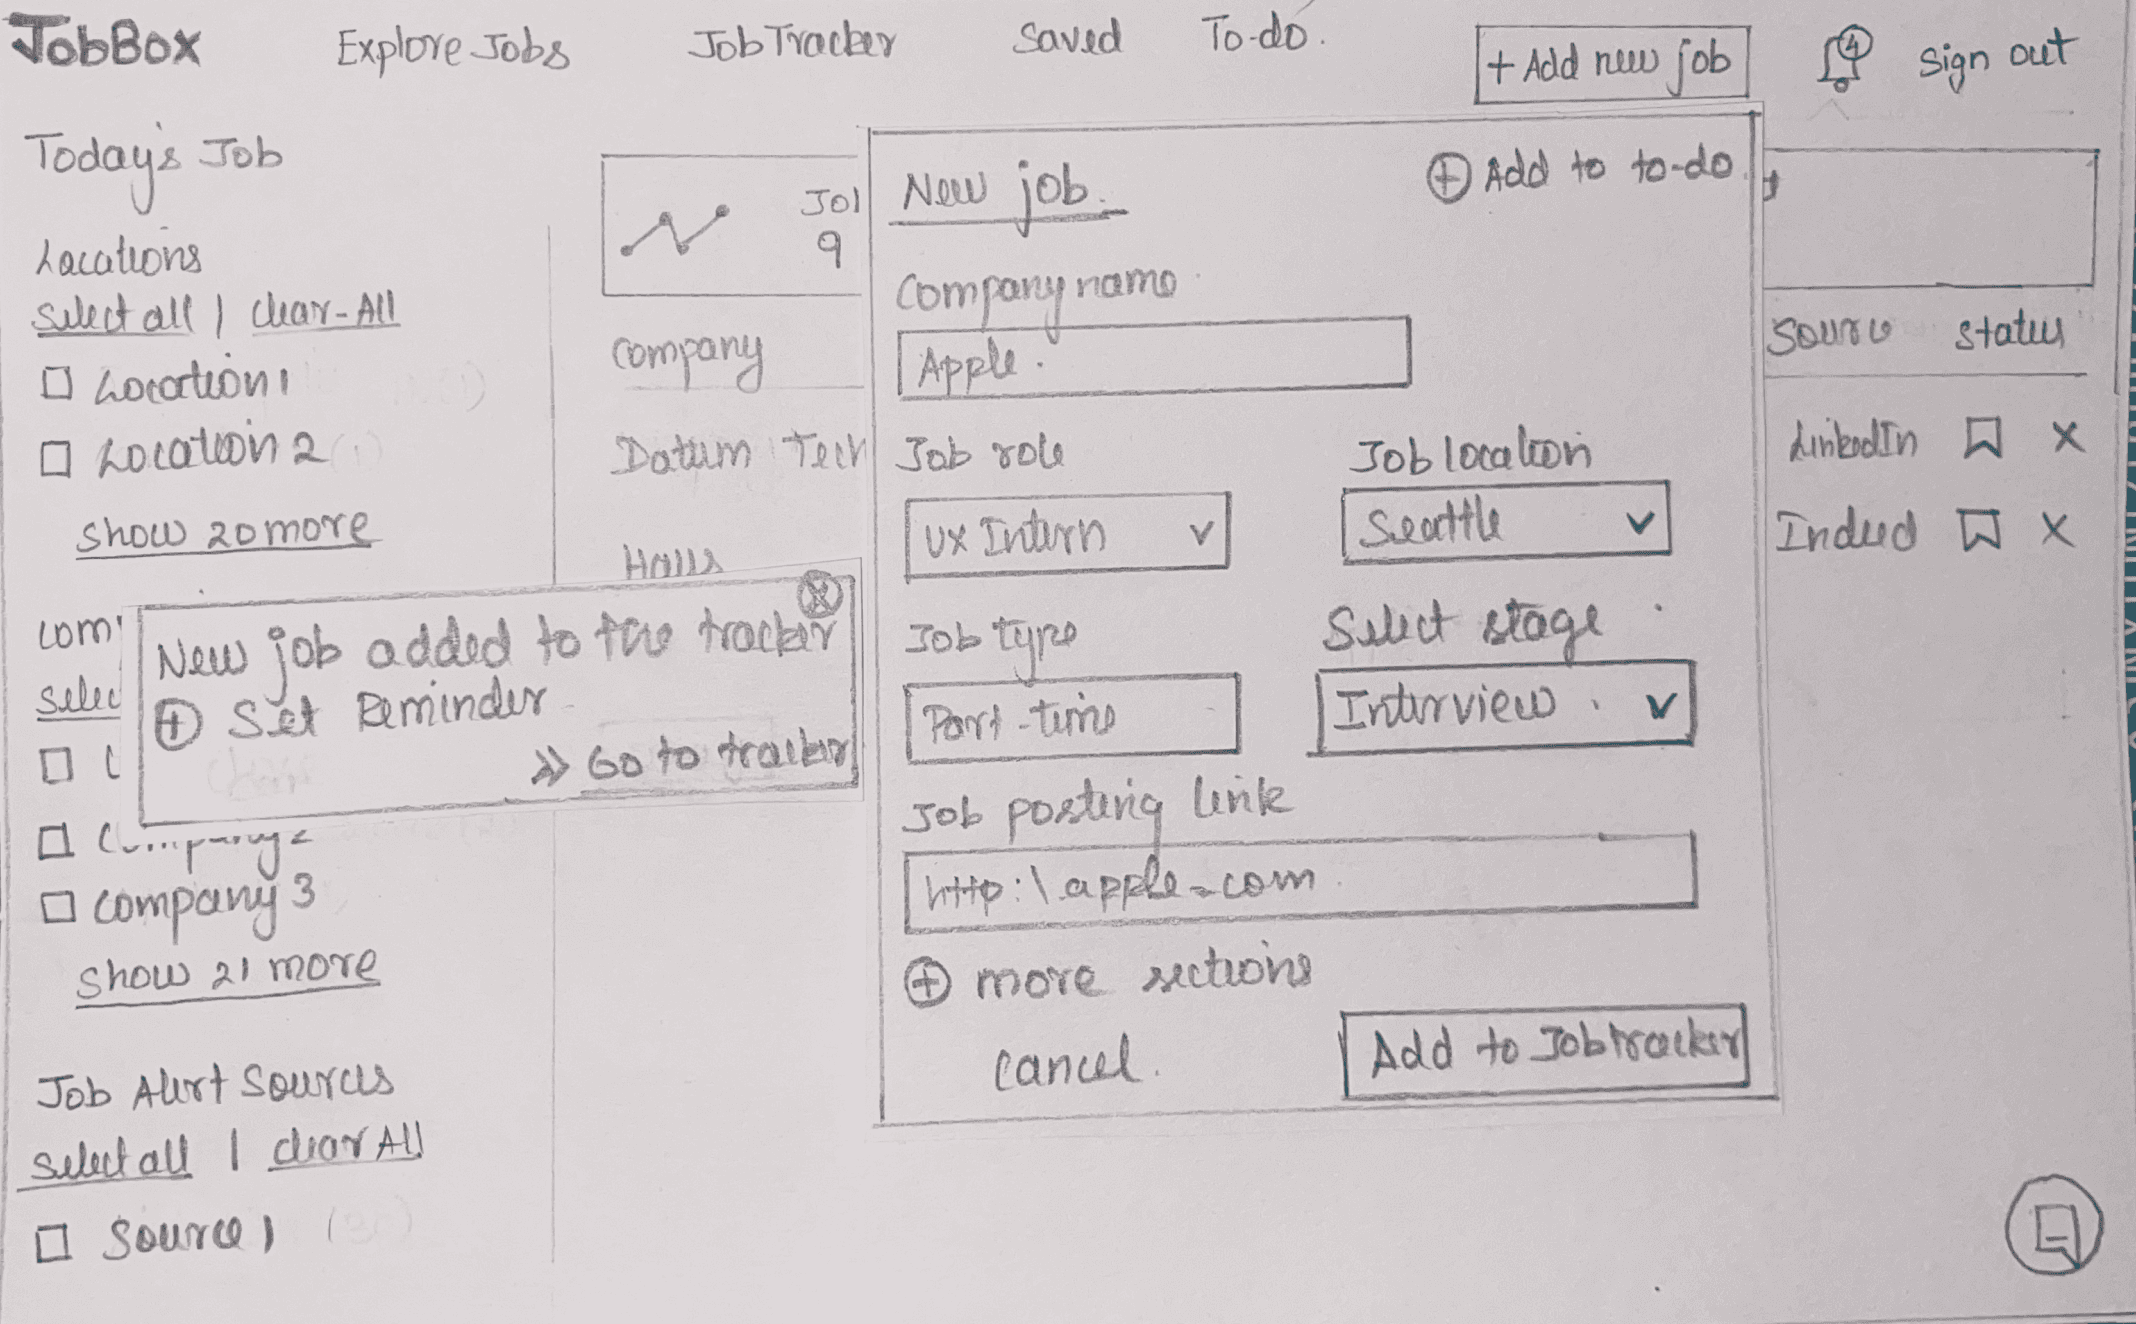 JobBox Explore Jobs JobTracker Saved To-do. + Add new job 4 Sign out
Today's Job
Locations
Select all | Clear-All
Location 1
Location 2
Show 20 more
com
selec
C
company 2
company 3
Show 21 more
Job Alert Sources
Select all | clear All
Source 1
Jo
9
company
Datum Tech
Source Status
LinkedIn X
Indeed X
New job added to the tracker
Set Reminder
>> Go to tracker
New job. Add to to-do.
Company name
Apple.
Job role Job location
UX Intern Seattle
Job type Select stage
Part-time Interview.
Job posting link
http:\ apple.com
more sections
cancel. Add to Jobtracker